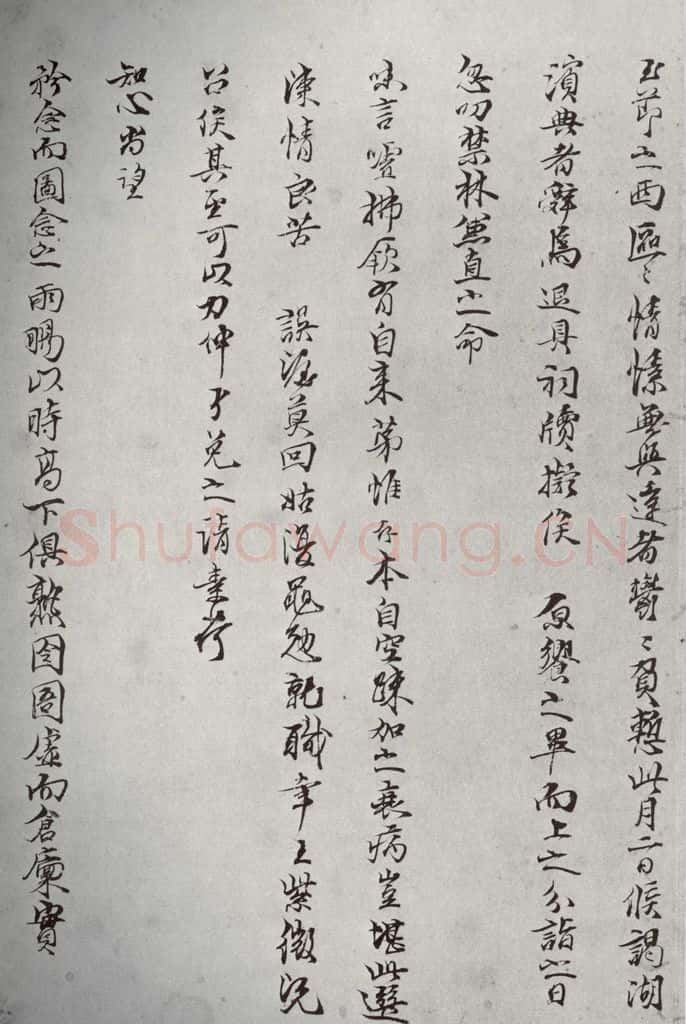 玉節之西區〻情愫無與達者鬱〻負慙此月二日候謁湖
濱典者辭焉退具祠牘擬俟 原饗之畢而上之分詣之日
忽叨禁林兼直之命
味言噓拂厥有自来第惟存本自空疎加之衰病豈堪此選
陳情良苦 誤渥莫回姑復黽勉就職幸王紫微況
召俟其至可以力伸予免之請素荷
知心尚望
矜念而圖念之雨暘以時高下俱熟囹圄虛而倉廩實
Shufawang.CN